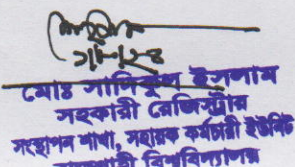 মোঃ সানিকুল ইসলাম
সহকারী রেজিস্ট্রার
সংস্থাপন শাখা, সহায়ক কর্মচারী ইউনিট
বিশ্ববিদ্যালয়